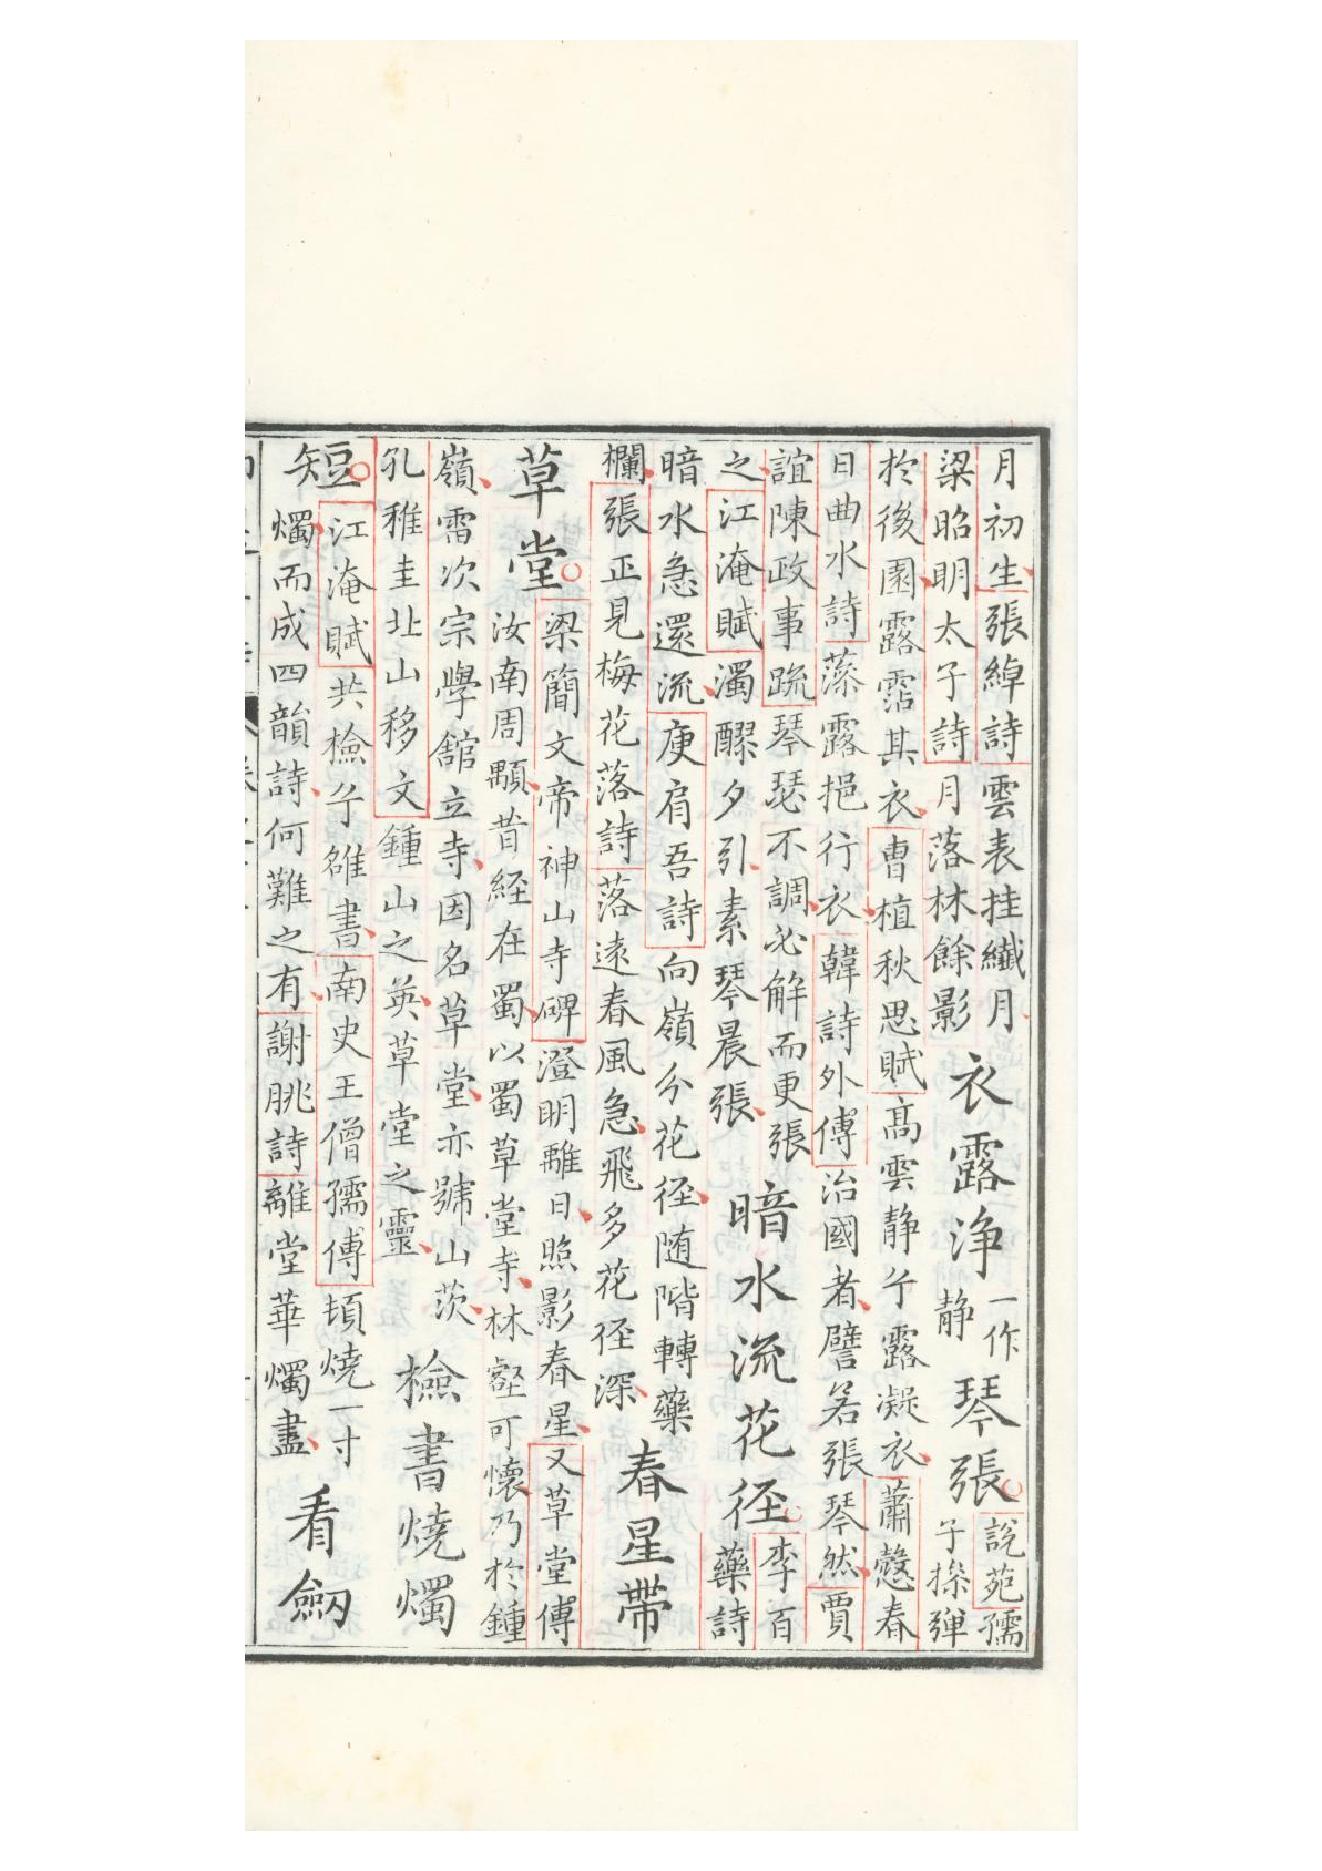 月初生張綽詩雲表挂纖月
梁昭明太子詩月落林餘影
衣露淨
一作
静
琴張
說苑孺
子操彈
於後園露霑其衣曹植秋思賦高雲静兮露凝衣蕭慤春
日曲水詩蘂露挹行衣韓詩外傅治國者譬若張琴然賈
誼陳政事䟽琴瑟不調必解而更張
之江淹賦濁醪夕引素琴晨張
暗水流花径
李百
藥詩
暗水急還流庾肩吾詩向嶺分花径随階轉藥
欄張正見梅花落詩落遠春風急飛多花径深
春星帶
草堂
梁簡文帝神山寺碑澄明離日照影春星又草堂傅
汝南周顒昔経在蜀以蜀草堂寺林壑可懷乃於鍾
嶺雷次宗學舘立寺因名草堂亦號山茨
孔稚圭北山移文鍾山之英草堂之靈
檢書燒燭
短
江淹賦共檢兮雒書南史王僧孺傅頓燒一寸
燭而成四韻詩何難之有謝朓詩離堂華燭盡
看劔